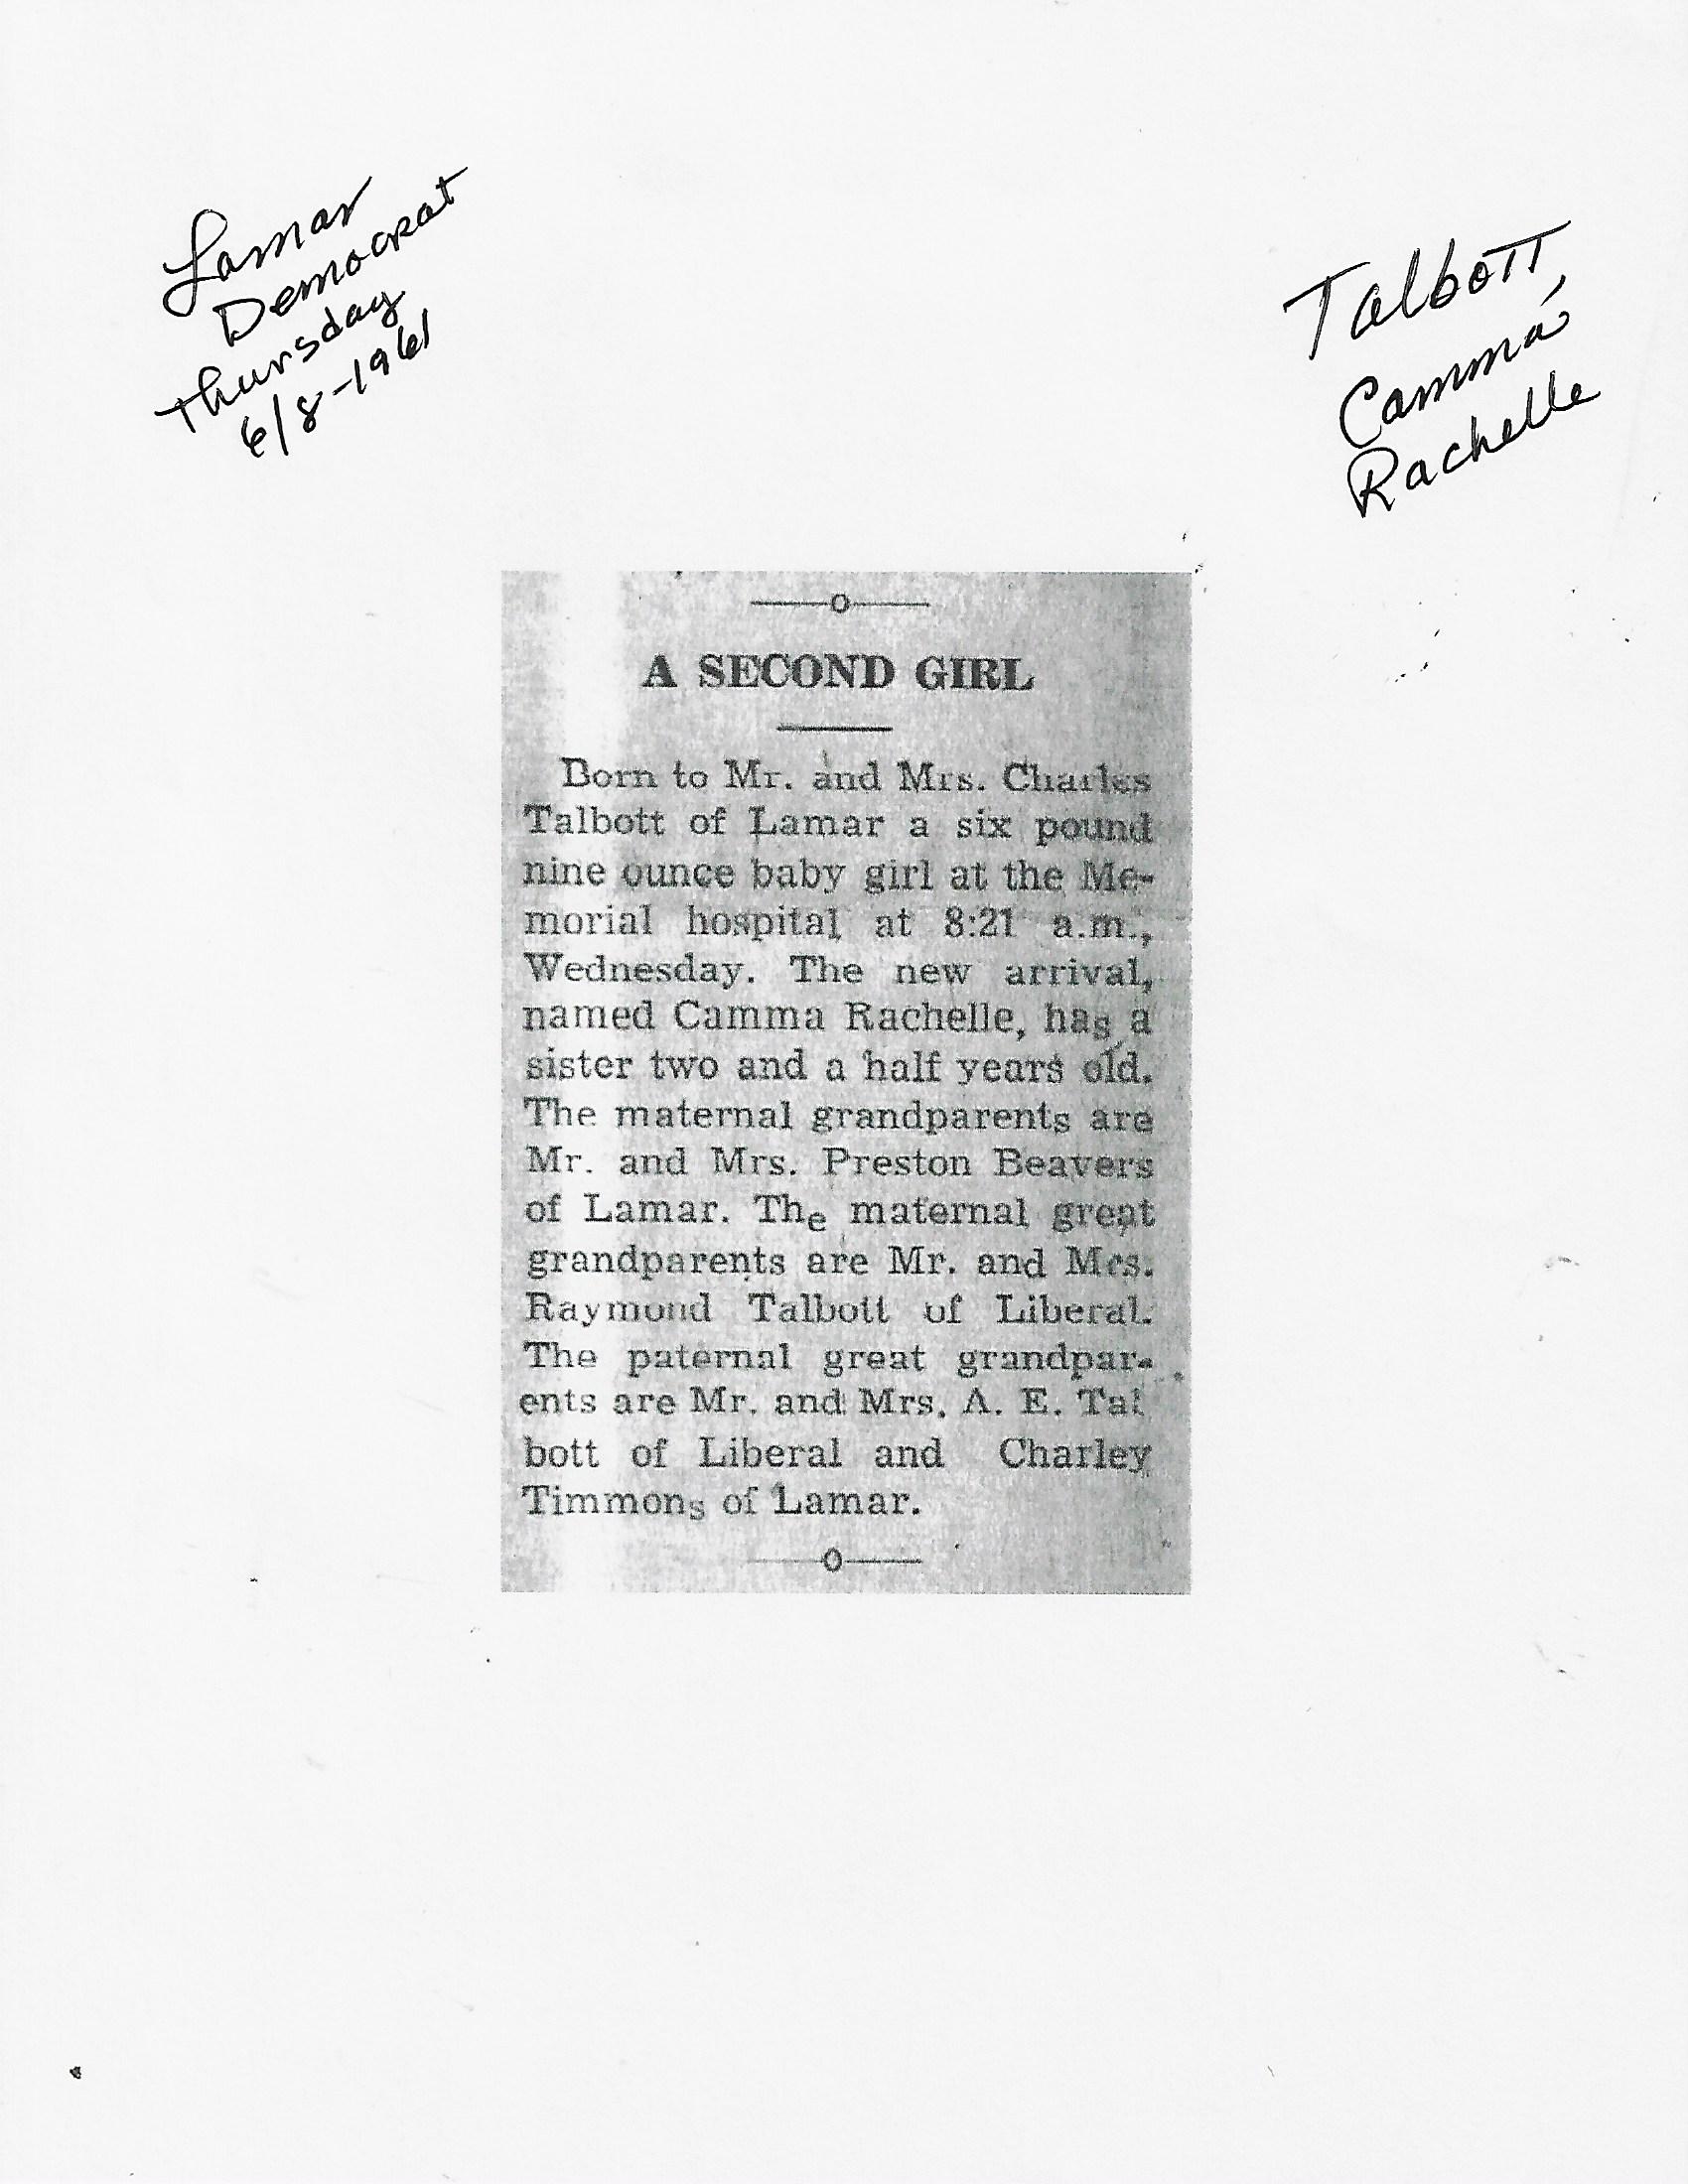 Lamar
Democrat
Thursday
6/8-1961
Talbott,
Camma
Rachelle
A SECOND GIRL
Born to Mr. and Mrs. Charles
Talbott of Lamar a six pound
nine ounce baby girl at the Me-
morial hospital at 8:21 a.m.,
Wednesday. The new arrival,
named Camma Rachelle, has a
sister two and a half years old.
The maternal grandparents are
Mr. and Mrs. Preston Beavers
of Lamar. The maternal great
grandparents are Mr. and Mrs.
Raymond Talbott of Liberal.
The paternal great grandpar-
ents are Mr. and Mrs. A. E. Tal
bott of Liberal and Charley
Timmons of Lamar.